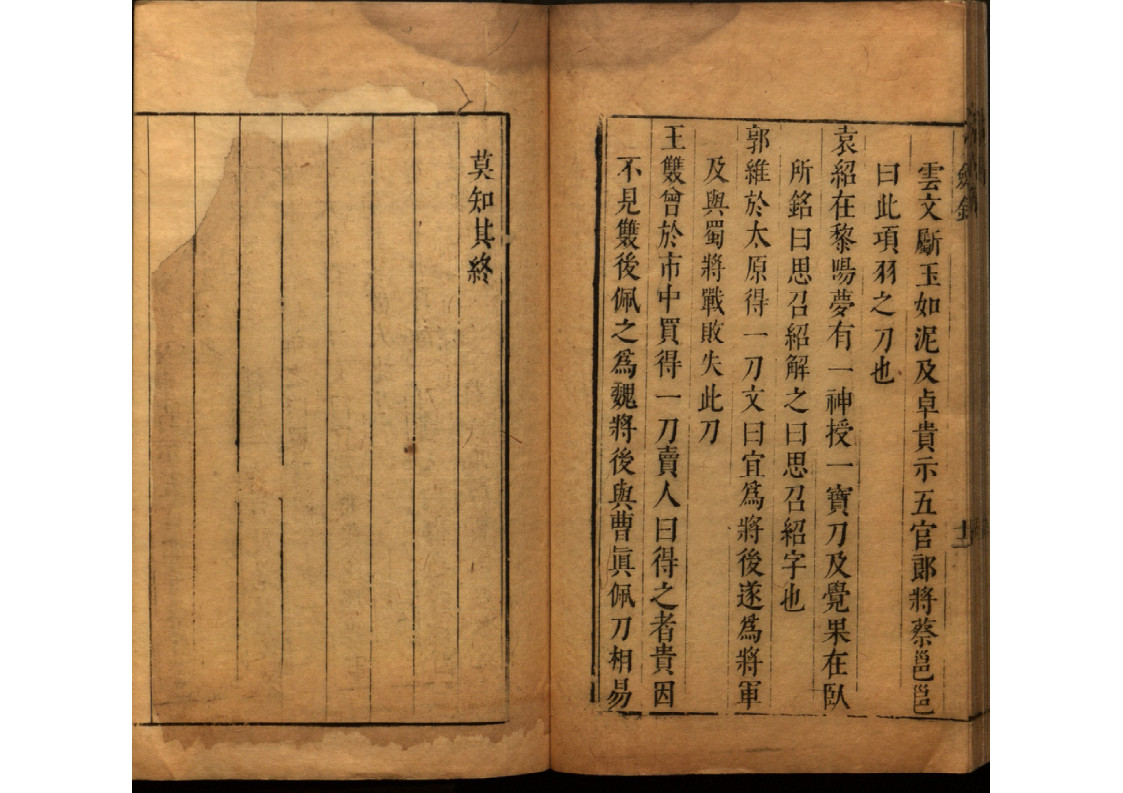 雲文斷玉如泥及卓貴示五官郎將蔡邕邕
曰此項羽之刀也
袁紹在黎陽夢有一神授一寶刀及覺果在臥
所銘曰思召紹解之曰思召紹字也
郭維於太原得一刀文曰宜爲將後遂爲將軍
及與蜀將戰敗失此刀
王雙曾於市中買得一刀賣人曰得之者貴因
不見雙後佩之爲魏將後與曹眞佩刀相易
莫知其終